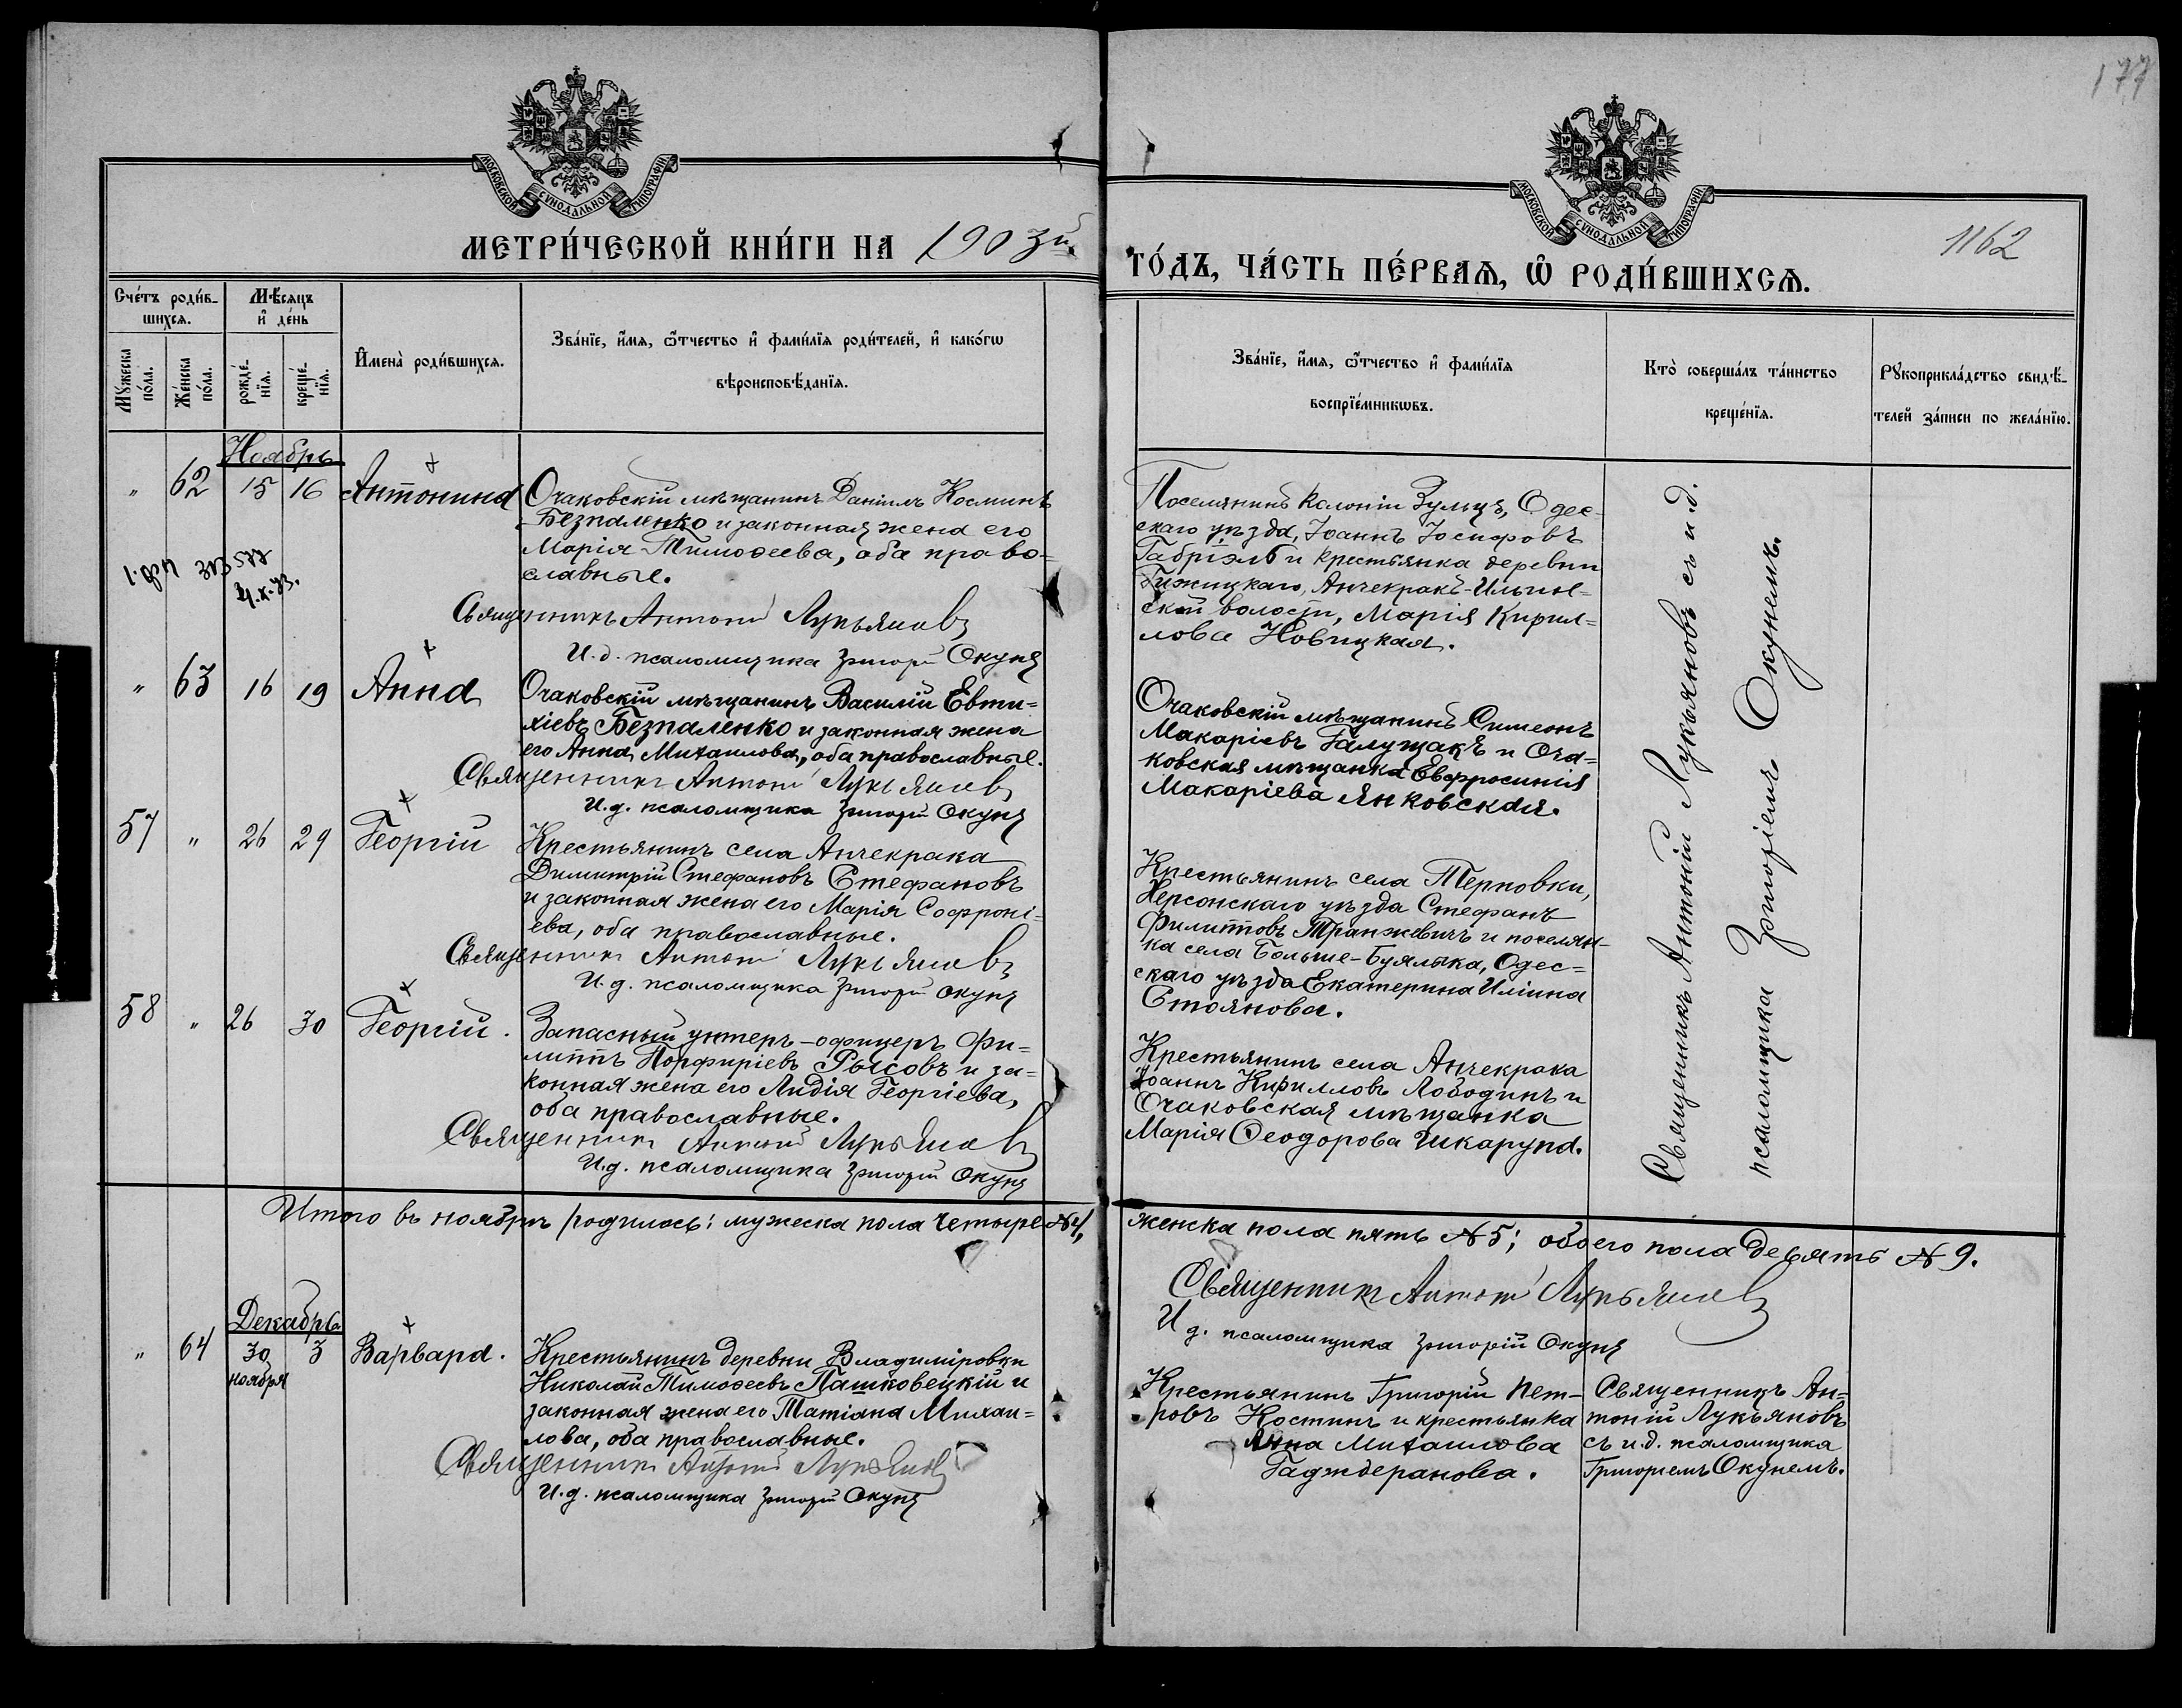 177
МОСКОВСКОЙ СѴНОДАЛЬНОЙ ТИПОГРАФІИ
МОСКОВСКОЙ СѴНОДАЛЬНОЙ ТИПОГРАФІИ
1162
МЕТРИ́ЧЕСКОЙ КНИ́ГИ НА 1903й.
ГО́ДЪ, ЧА́СТЬ ПЕ́РВАѦ, Ѡ РОДИ́ВШИХСѦ.
Сче́тъ роди́в-
шихсѧ.
Мѣ́сѧцъ
и҆ де́нь
Мꙋжеска по́ла.
Же́нска по́ла.
рожде́-
нїѧ.
креще́-
нїѧ.
И҆мена̀ роди́вшихсѧ.
Зва́нїе, и҆́мѧ, ѻ҆́тчество и҆ фами́лїѧ роди́телей, и҆ како́гѡ
вѣроисповѣ́данїѧ.
Зва́нїе, и҆́мѧ, ѻ҆́тчество и҆ фами́лїѧ
воспрїе́мникѡвъ.
Кто̀ соверша́лъ та́инство
креще́нїѧ.
Рꙋкоприкла́дство свидѣ́-
телей за́писи по жела́нїю.
Ноябрь
" 62 15 16 Антонина
Очаковскій мѣщанинъ Даніилъ Косминъ
Безпаленко и законная жена его
Марія Тимоѳеева, оба право=
славные.
Священникъ Антоній Лукьяновъ
И.д. псаломщика Григорій Окунь
Поселянинъ колоніи Зульцъ, Одес-
скаго уѣзда, Іоаннъ Іосифовъ
Габріэлъ и крестьянка деревни
Гижицкаго, Анчекракъ-Ильин=
ской волости, Марія Кирил=
лова Новицкая.
" 63 16 19 Анна
Очаковскій мѣщанинъ Василій Евти=
хіевъ Безпаленко и законная жена
его Анна Михаилова, оба православные.
Священникъ Антоній Лукьяновъ
И.д. псаломщика Григорій Окунь
Очаковскій мѣщанинъ Симеонъ
Макаріевъ Галущакъ и Оча=
ковская мѣщанка Евфросинія
Макаріева Янковская.
57 " 26 29 Георгій
Крестьянинъ села Анчекрака
Димитрій Стефановъ Стефановъ
и законная жена его Марія Софроні=
ева, оба православные.
Священникъ Антоній Лукьяновъ
И.д. псаломщика Григорій Окунь
Крестьянинъ села Терновки,
Херсонскаго уѣзда Стефанъ
Филипповъ Транжевичъ и поселян-
ка села Больше-Буялыка, Одес=
скаго уѣзда Екатерина Иліина
Стоянова.
58 " 26 30 Георгій.
Запасный унтеръ-офицеръ Фи=
липпъ Порфиріевъ Рысовъ и за=
конная жена его Лидія Георгіева,
оба православные.
Священникъ Антоній Лукьяновъ
И.д. псаломщика Григорій Окунь
Крестьянинъ села Анчекрака
Іоаннъ Кирилловъ Лободинъ и
Очаковская мѣщанка
Марія Ѳеодорова Шкарупа.
Священникъ Антоній Лукьяновъ съ и.д.
псаломщика Григоріемъ Окунемъ.
Итого въ ноябрѣ родилось: мужеска пола четыре №4, женска пола пять №5; обоего пола девять №9.
Священникъ Антоній Лукьяновъ
И д. псаломщика Григорій Окунь
Декабрь
" 64 30 3 Варвара.
ноября
Крестьянинъ деревни Владиміровки
Николай Тимоѳеевъ Пашковецкій и
законная жена его Татіана Михаи=
лова, оба православные.
Священникъ Антоній Лукьяновъ
И.д. псаломщика Григорій Окунь
Крестьянинъ Григорій Пет-
ровъ Костинъ и крестьянка
Анна Михаилова
Гадждеранова.
Священникъ Ан=
тоній Лукьяновъ
съ и.д. псаломщика
Григоріемъ Окунемъ.